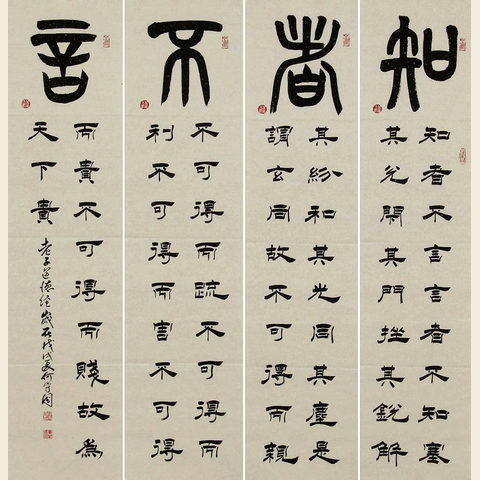 知
知者不言言者不知塞
其兌閉其門挫其銳解
者
其紛和其光同其塵是
謂玄同故不可得而親
不
不可得而疏不可得而
利不可得而害不可得
言
而貴不可得而賤故為
天下貴
老子道德經歲在戊戌夏